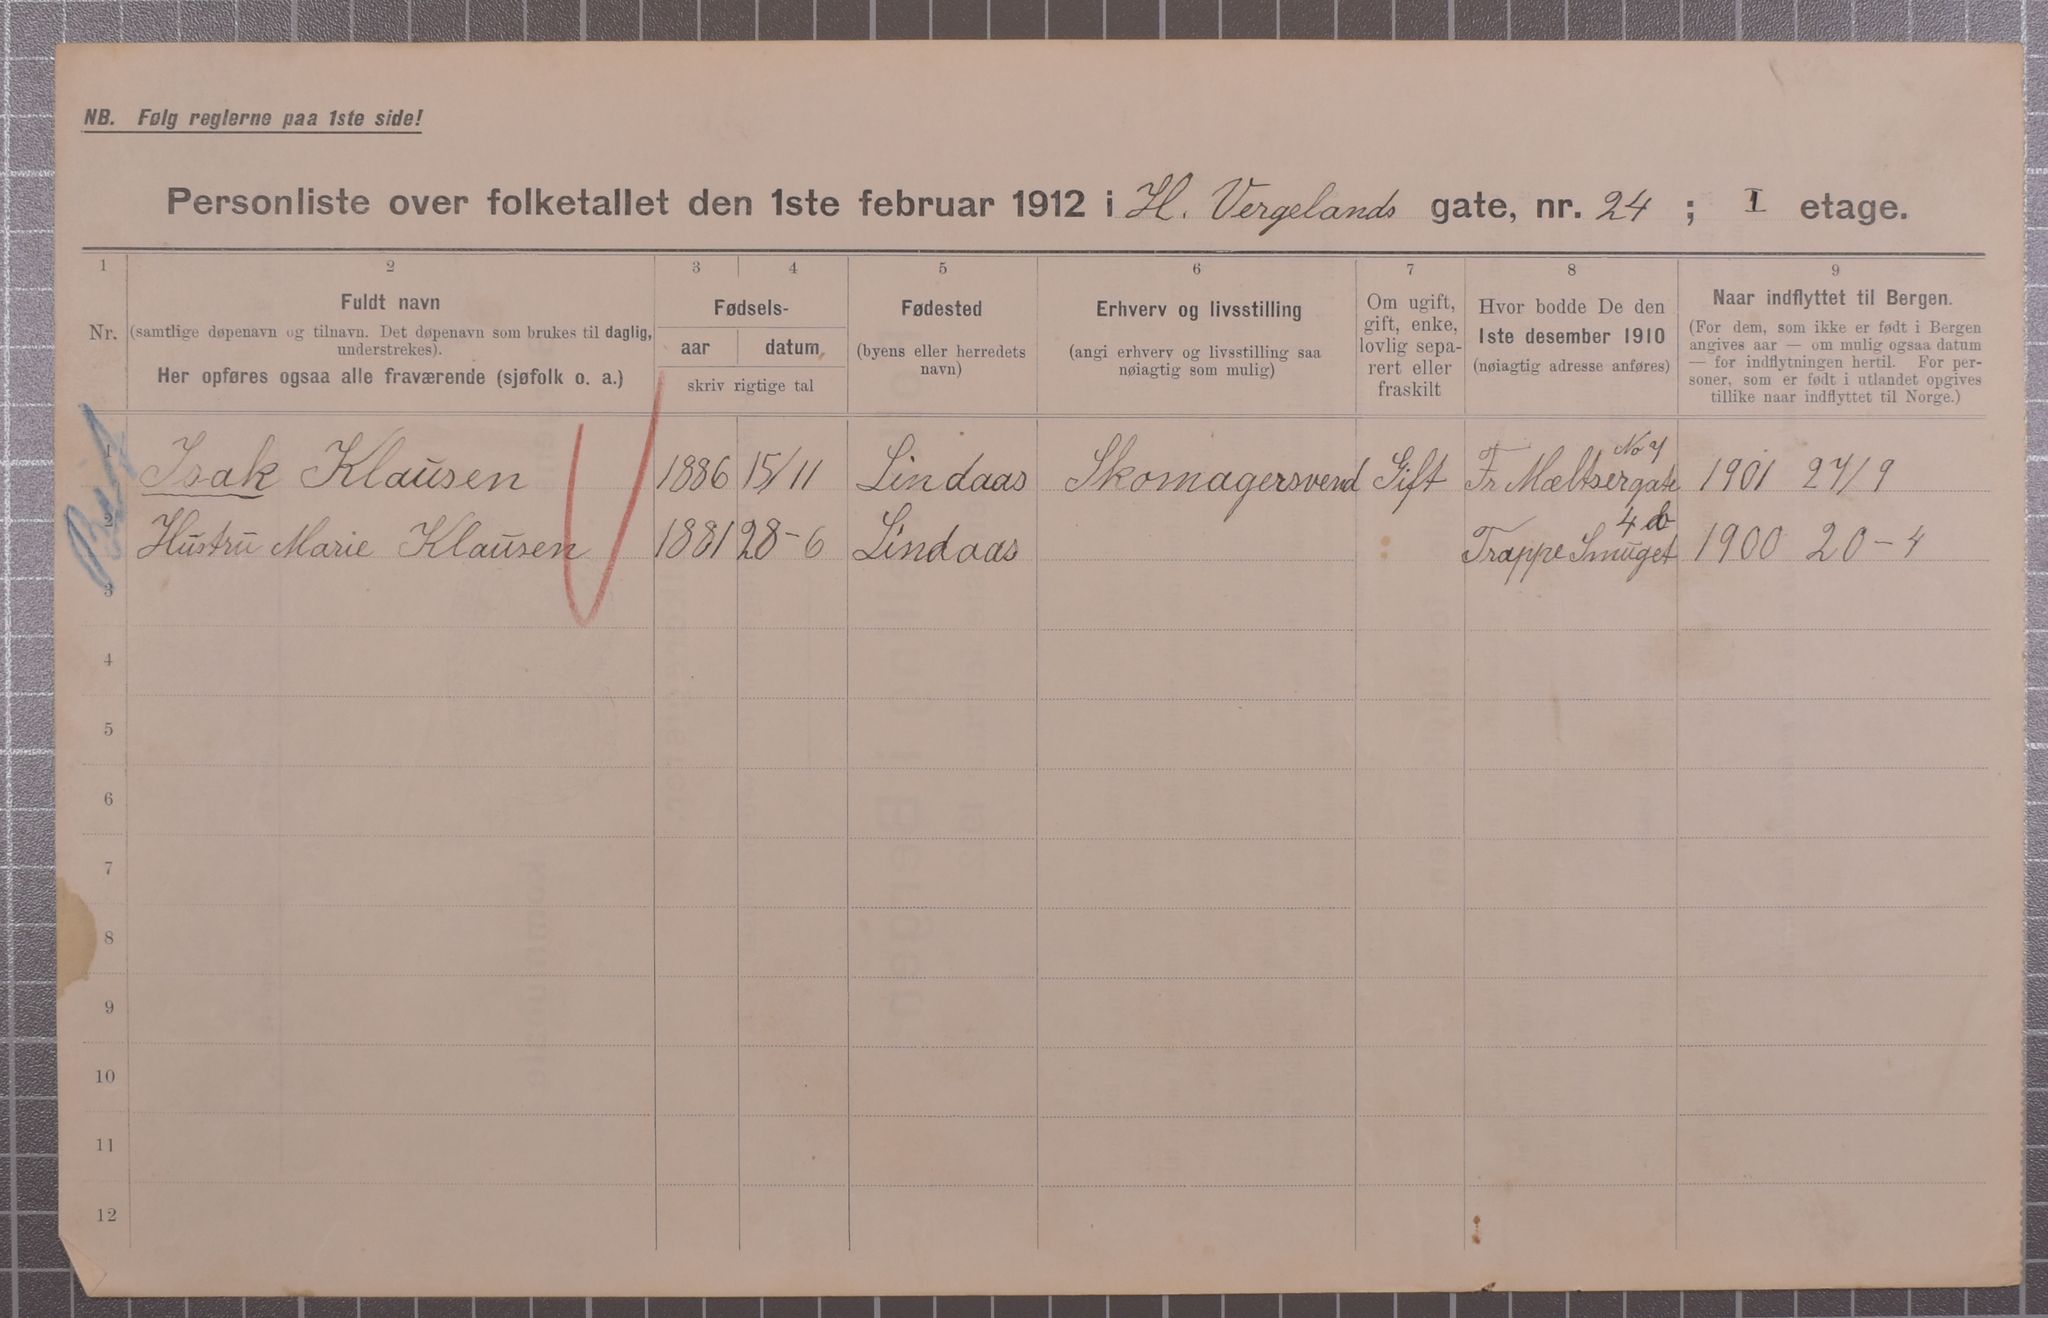 NB. Følg reglerne paa 1ste side!
Personliste over folketallet den 1ste februar 1912 i H. Vergelands gate, nr. 24 ; I etage.
1 2 3 4 5 6 7 8 9
Nr.
Fuldt navn
(samtlige døpenavn og tilnavn. Det døpenavn som brukes til daglig,
understrekes).
Her opføres ogsaa alle fraværende (sjøfolk o. a.)
Fødsels-
aar datum
skriv rigtige tal
Fødested
(byens eller herredets
navn)
Erhverv og livsstilling
(angi erhverv og livsstilling saa
nøiagtig som mulig)
Om ugift,
gift, enke,
lovlig sepa-
rert eller
fraskilt
Hvor bodde De den
1ste desember 1910
(nøiagtig adresse anføres)
Naar indflyttet til Bergen.
(For dem, som ikke er født i Bergen
angives aar — om mulig ogsaa datum
— for indflytningen hertil. For per-
soner, som er født i utlandet opgives
tillike naar indflyttet til Norge.)
1 Isak Klausen 1886 15/11 Lindaas Skomagersvend Gift Fr Meltsergate No 7 1901 27/9
2 Hustru Marie Klausen 1881 28-6 Lindaas Trappe Smuget 4 b 1900 20-4
3
4
5
6
7
8
9
10
11
12